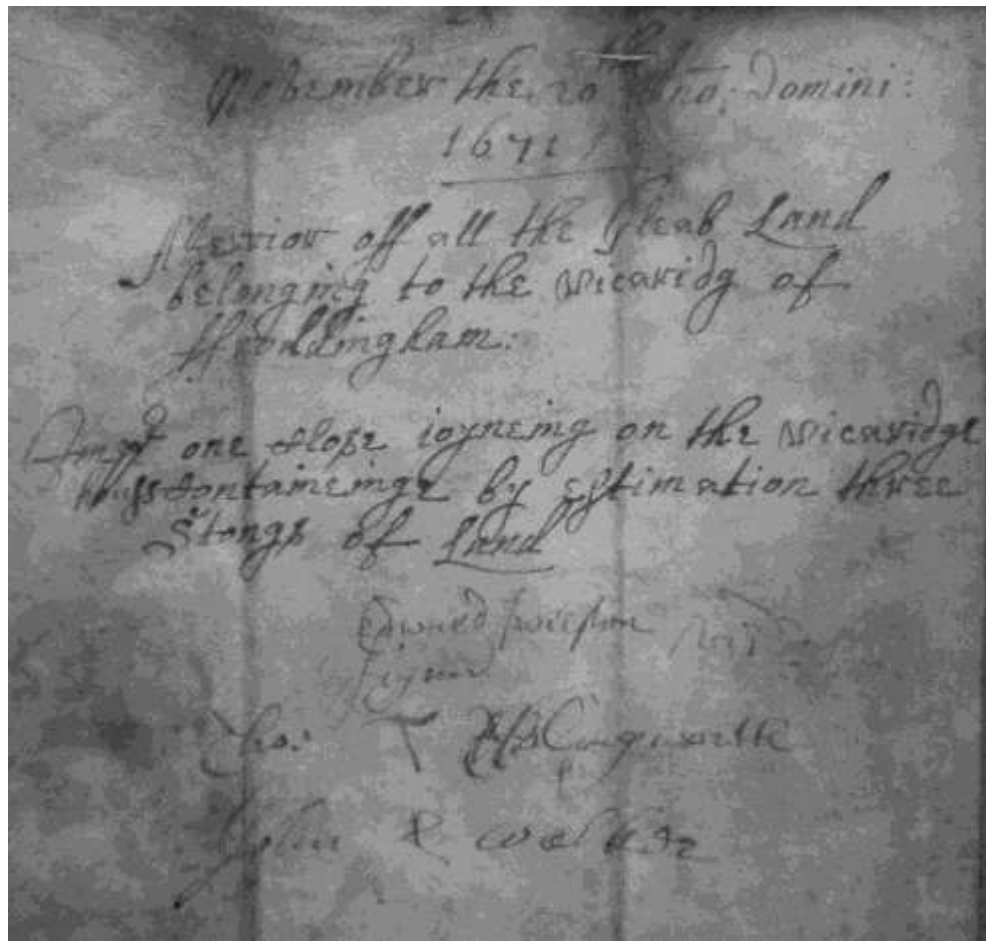 November the 20th Anno: Domini:
1671
A Terrior off all the Gleab Land
belonging to the vicaridg of
one close ioyneing on the vicaridge
house Containeinge by estimation three
Stongs of Land
Edward
signum
Thos T
John R walker